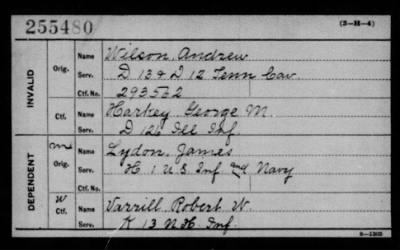 255480
(3-H-4)
INVALID
Orig.
Name Wilson, Andrew
Serv. D 13 & D 12 Tenn Cav.
Ctf. No. 293532
Ctf.
Name Harkey George M.
Serv. D 126 Ill Inf.
DEPENDENT
Orig.
Name Lydon, James
Serv. H 1 U S Inf and Navy
Ctf. No.
W
Ctf.
Name Varrill Robert W.
Serv. K 13 N H. Inf.